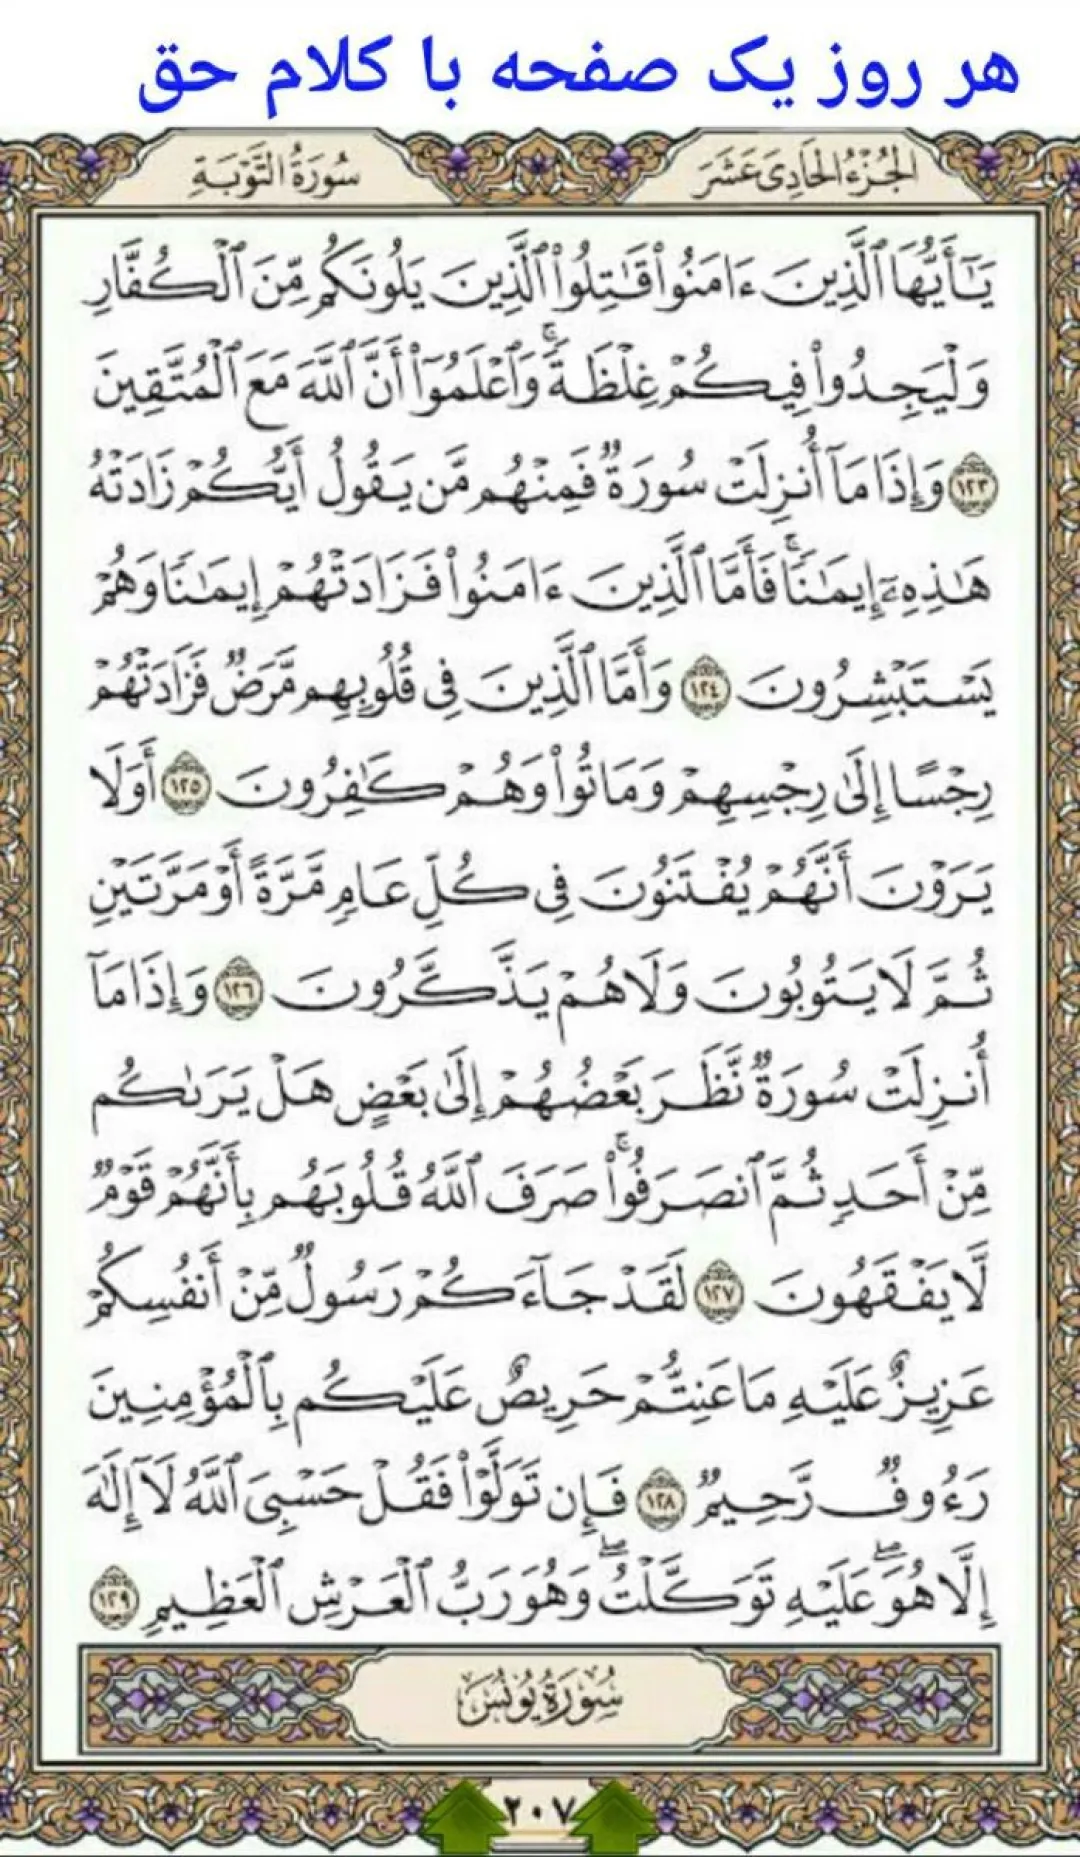 هر روز یک صفحه با کلام حق
الجُزْءُ الحَادِىَ عَشَرَ
سُورَةُ التَّوْبَةِ
يَٰٓأَيُّهَا ٱلَّذِينَ ءَامَنُوا۟ قَٰتِلُوا۟ ٱلَّذِينَ يَلُونَكُم مِّنَ ٱلْكُفَّارِ
وَلْيَجِدُوا۟ فِيكُمْ غِلْظَةً ۚ وَٱعْلَمُوٓا۟ أَنَّ ٱللَّهَ مَعَ ٱلْمُتَّقِينَ
١٢٣ وَإِذَا مَآ أُنزِلَتْ سُورَةٌ فَمِنْهُم مَّن يَقُولُ أَيُّكُمْ زَادَتْهُ
هَٰذِهِۦٓ إِيمَٰنًا ۚ فَأَمَّا ٱلَّذِينَ ءَامَنُوا۟ فَزَادَتْهُمْ إِيمَٰنًا وَهُمْ
يَسْتَبْشِرُونَ ١٢٤ وَأَمَّا ٱلَّذِينَ فِى قُلُوبِهِم مَّرَضٌ فَزَادَتْهُمْ
رِجْسًا إِلَىٰ رِجْسِهِمْ وَمَاتُوا۟ وَهُمْ كَٰفِرُونَ ١٢٥ أَوَلَا
يَرَوْنَ أَنَّهُمْ يُفْتَنُونَ فِى كُلِّ عَامٍ مَّرَّةً أَوْ مَرَّتَيْنِ
ثُمَّ لَا يَتُوبُونَ وَلَا هُمْ يَذَّكَّرُونَ ١٢٦ وَإِذَا مَآ
أُنزِلَتْ سُورَةٌ نَّظَرَ بَعْضُهُمْ إِلَىٰ بَعْضٍ هَلْ يَرَىٰكُم
مِّنْ أَحَدٍ ثُمَّ ٱنصَرَفُوا۟ ۚ صَرَفَ ٱللَّهُ قُلُوبَهُم بِأَنَّهُمْ قَوْمٌ
لَّا يَفْقَهُونَ ١٢٧ لَقَدْ جَآءَكُمْ رَسُولٌ مِّنْ أَنفُسِكُمْ
عَزِيزٌ عَلَيْهِ مَا عَنِتُّمْ حَرِيصٌ عَلَيْكُم بِٱلْمُؤْمِنِينَ
رَءُوفٌ رَّحِيمٌ ١٢٨ فَإِن تَوَلَّوْا۟ فَقُلْ حَسْبِىَ ٱللَّهُ لَآ إِلَٰهَ
إِلَّا هُوَ ۖ عَلَيْهِ تَوَكَّلْتُ ۖ وَهُوَ رَبُّ ٱلْعَرْشِ ٱلْعَظِيمِ ١٢٩
سُورَةُ يُونُسَ
٢٠٧